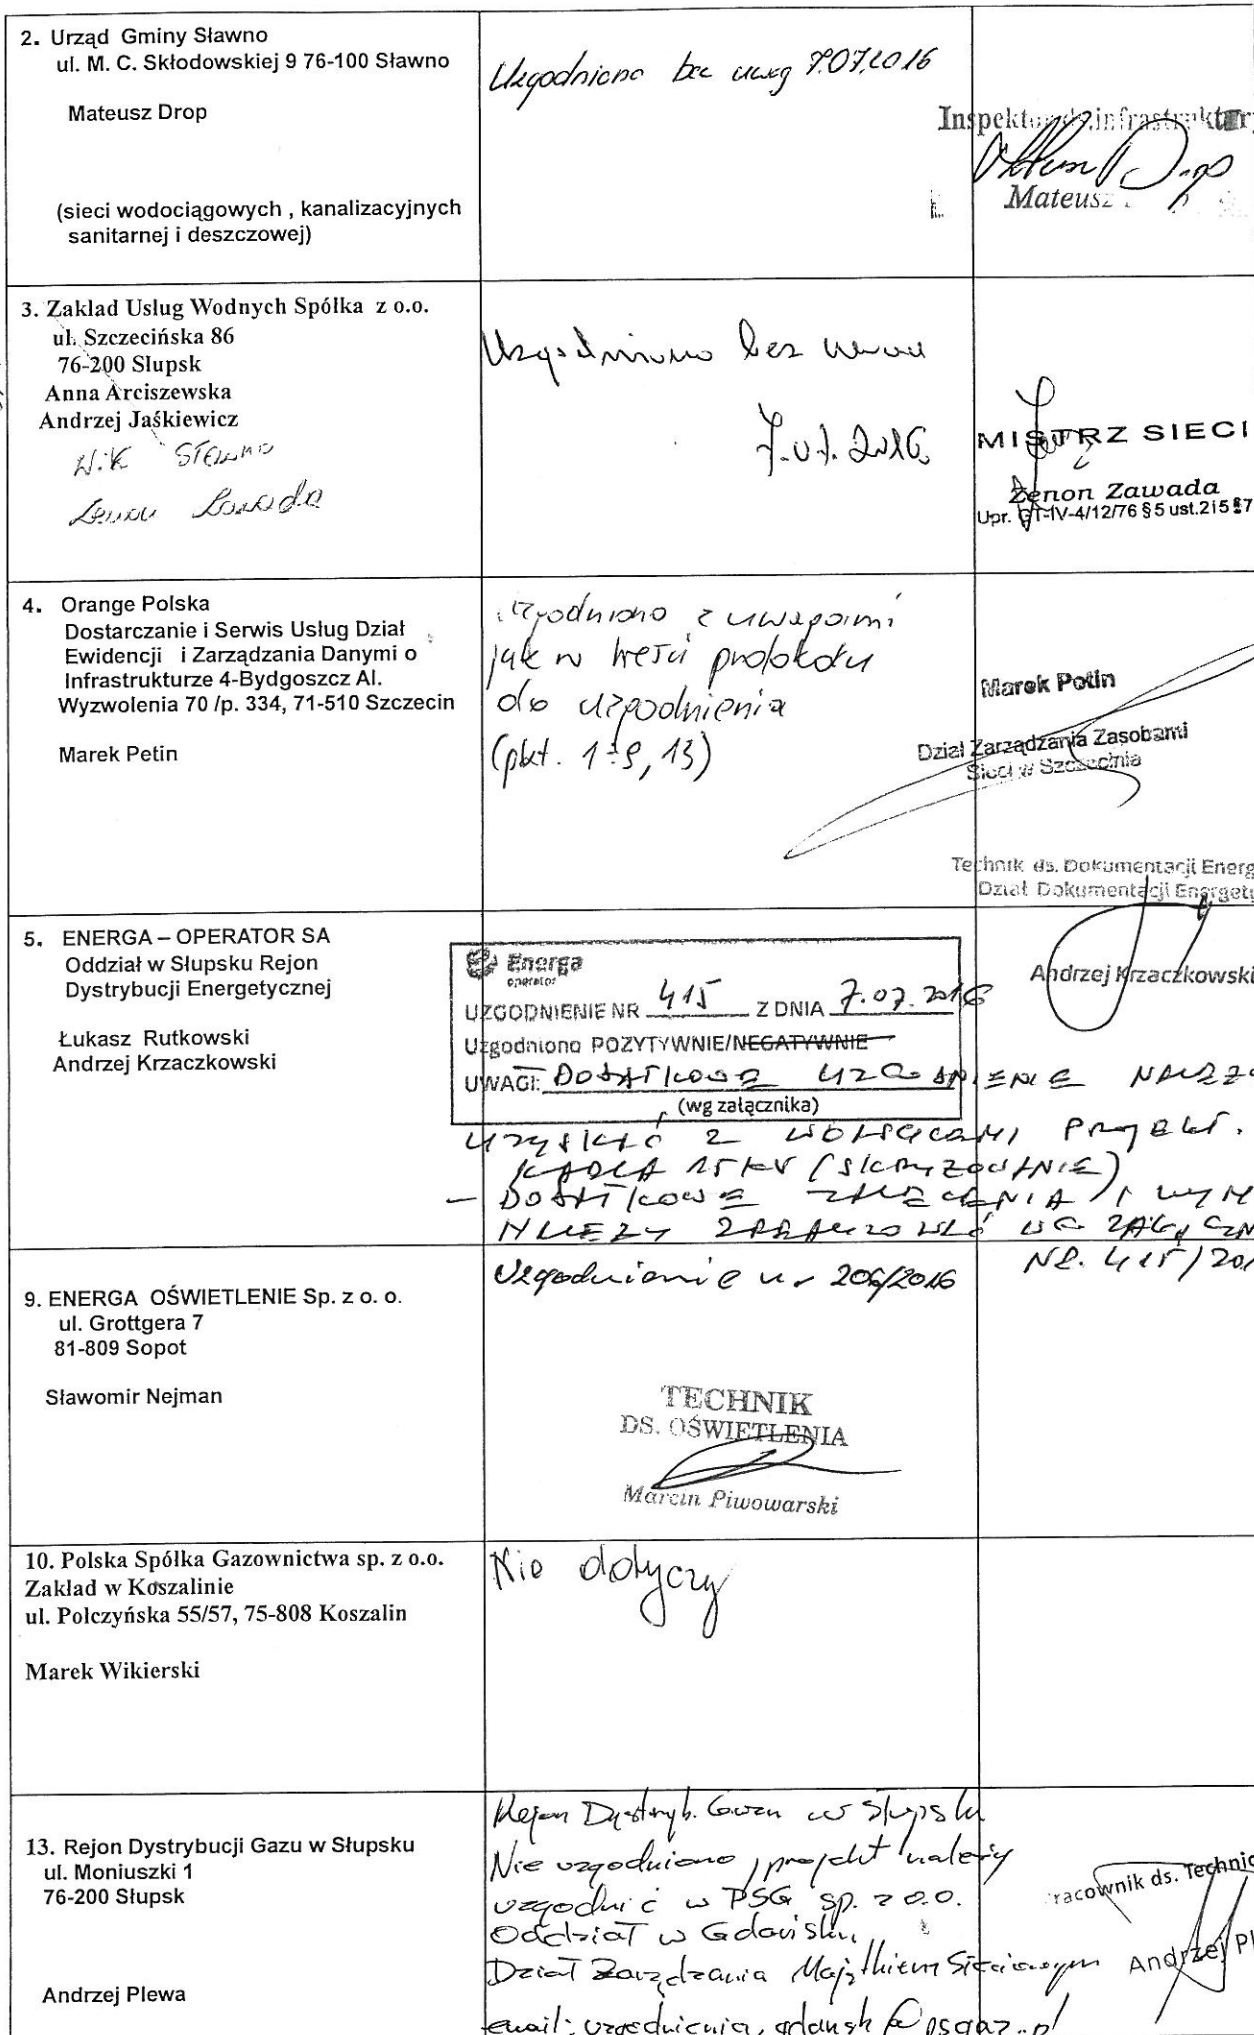 2. Urząd Gminy Sławno
ul. M. C. Skłodowskiej 9 76-100 Sławno
Mateusz Drop
(sieci wodociągowych , kanalizacyjnych
sanitarnej i deszczowej)
Uzgodniono bez uwag 7.07.2016
Inspektor ds. infrastruktury
Mateusz
3. Zakład Usług Wodnych Spółka z o.o.
ul. Szczecińska 86
76-200 Słupsk
Anna Arciszewska
Andrzej Jaśkiewicz
W.K Sławno
Zenon Zawada
Uzgodniono bez uwag
7.07.2016
MISTRZ SIECI
Zenon Zawada
Upr. GT-IV-4/12/76 § 5 ust.2i5 §7
4. Orange Polska
Dostarczanie i Serwis Usług Dział
Ewidencji i Zarządzania Danymi o
Infrastrukturze 4-Bydgoszcz Al.
Wyzwolenia 70 /p. 334, 71-510 Szczecin
Marek Petin
Uzgodniono z uwagami
jak w treści protokołu
do uzgodnienia
(pkt. 1÷9, 13)
Marek Petin
Dział Zarządzania Zasobami
Sieci w Szczecinie
Technik ds. Dokumentacji Energ
Dział Dokumentacji Energety
5. ENERGA – OPERATOR SA
Oddział w Słupsku Rejon
Dystrybucji Energetycznej
Łukasz Rutkowski
Andrzej Krzaczkowski
Energa
operator
UZGODNIENIE NR 415 Z DNIA 7.07.2016
Uzgodniono POZYTYWNIE/NEGATYWNIE
UWAGI: DODATKOWE UZGODNIENIE NALEŻ
(wg załącznika)
UZYSKAĆ Z PROJEKT.
KABLA 15 KV (SKRZYŻOWANIE)
– DODATKOWE ZALECENIA I WYM
NALEŻY WG ZAŁĄCZN
NR. 415/201
Andrzej Krzaczkowski
9. ENERGA OŚWIETLENIE Sp. z o. o.
ul. Grottgera 7
81-809 Sopot
Sławomir Nejman
Uzgodnienie nr 206/2016
TECHNIK
DS. OŚWIETLENIA
Marcin Piwowarski
10. Polska Spółka Gazownictwa sp. z o.o.
Zakład w Koszalinie
ul. Połczyńska 55/57, 75-808 Koszalin
Marek Wikierski
Nie dotyczy
13. Rejon Dystrybucji Gazu w Słupsku
ul. Moniuszki 1
76-200 Słupsk
Andrzej Plewa
Rejon Dystryb. Gazu w Słupsku
Nie uzgodniono, projekt należy
uzgodnić w PSG sp. z o.o.
Oddział w Gdańsku
Dział Zarządzania Majątkiem Sieciowym
email: uzgodnienia.gdansk@psgaz.pl
racownik ds. Technic
Andrzej Pl